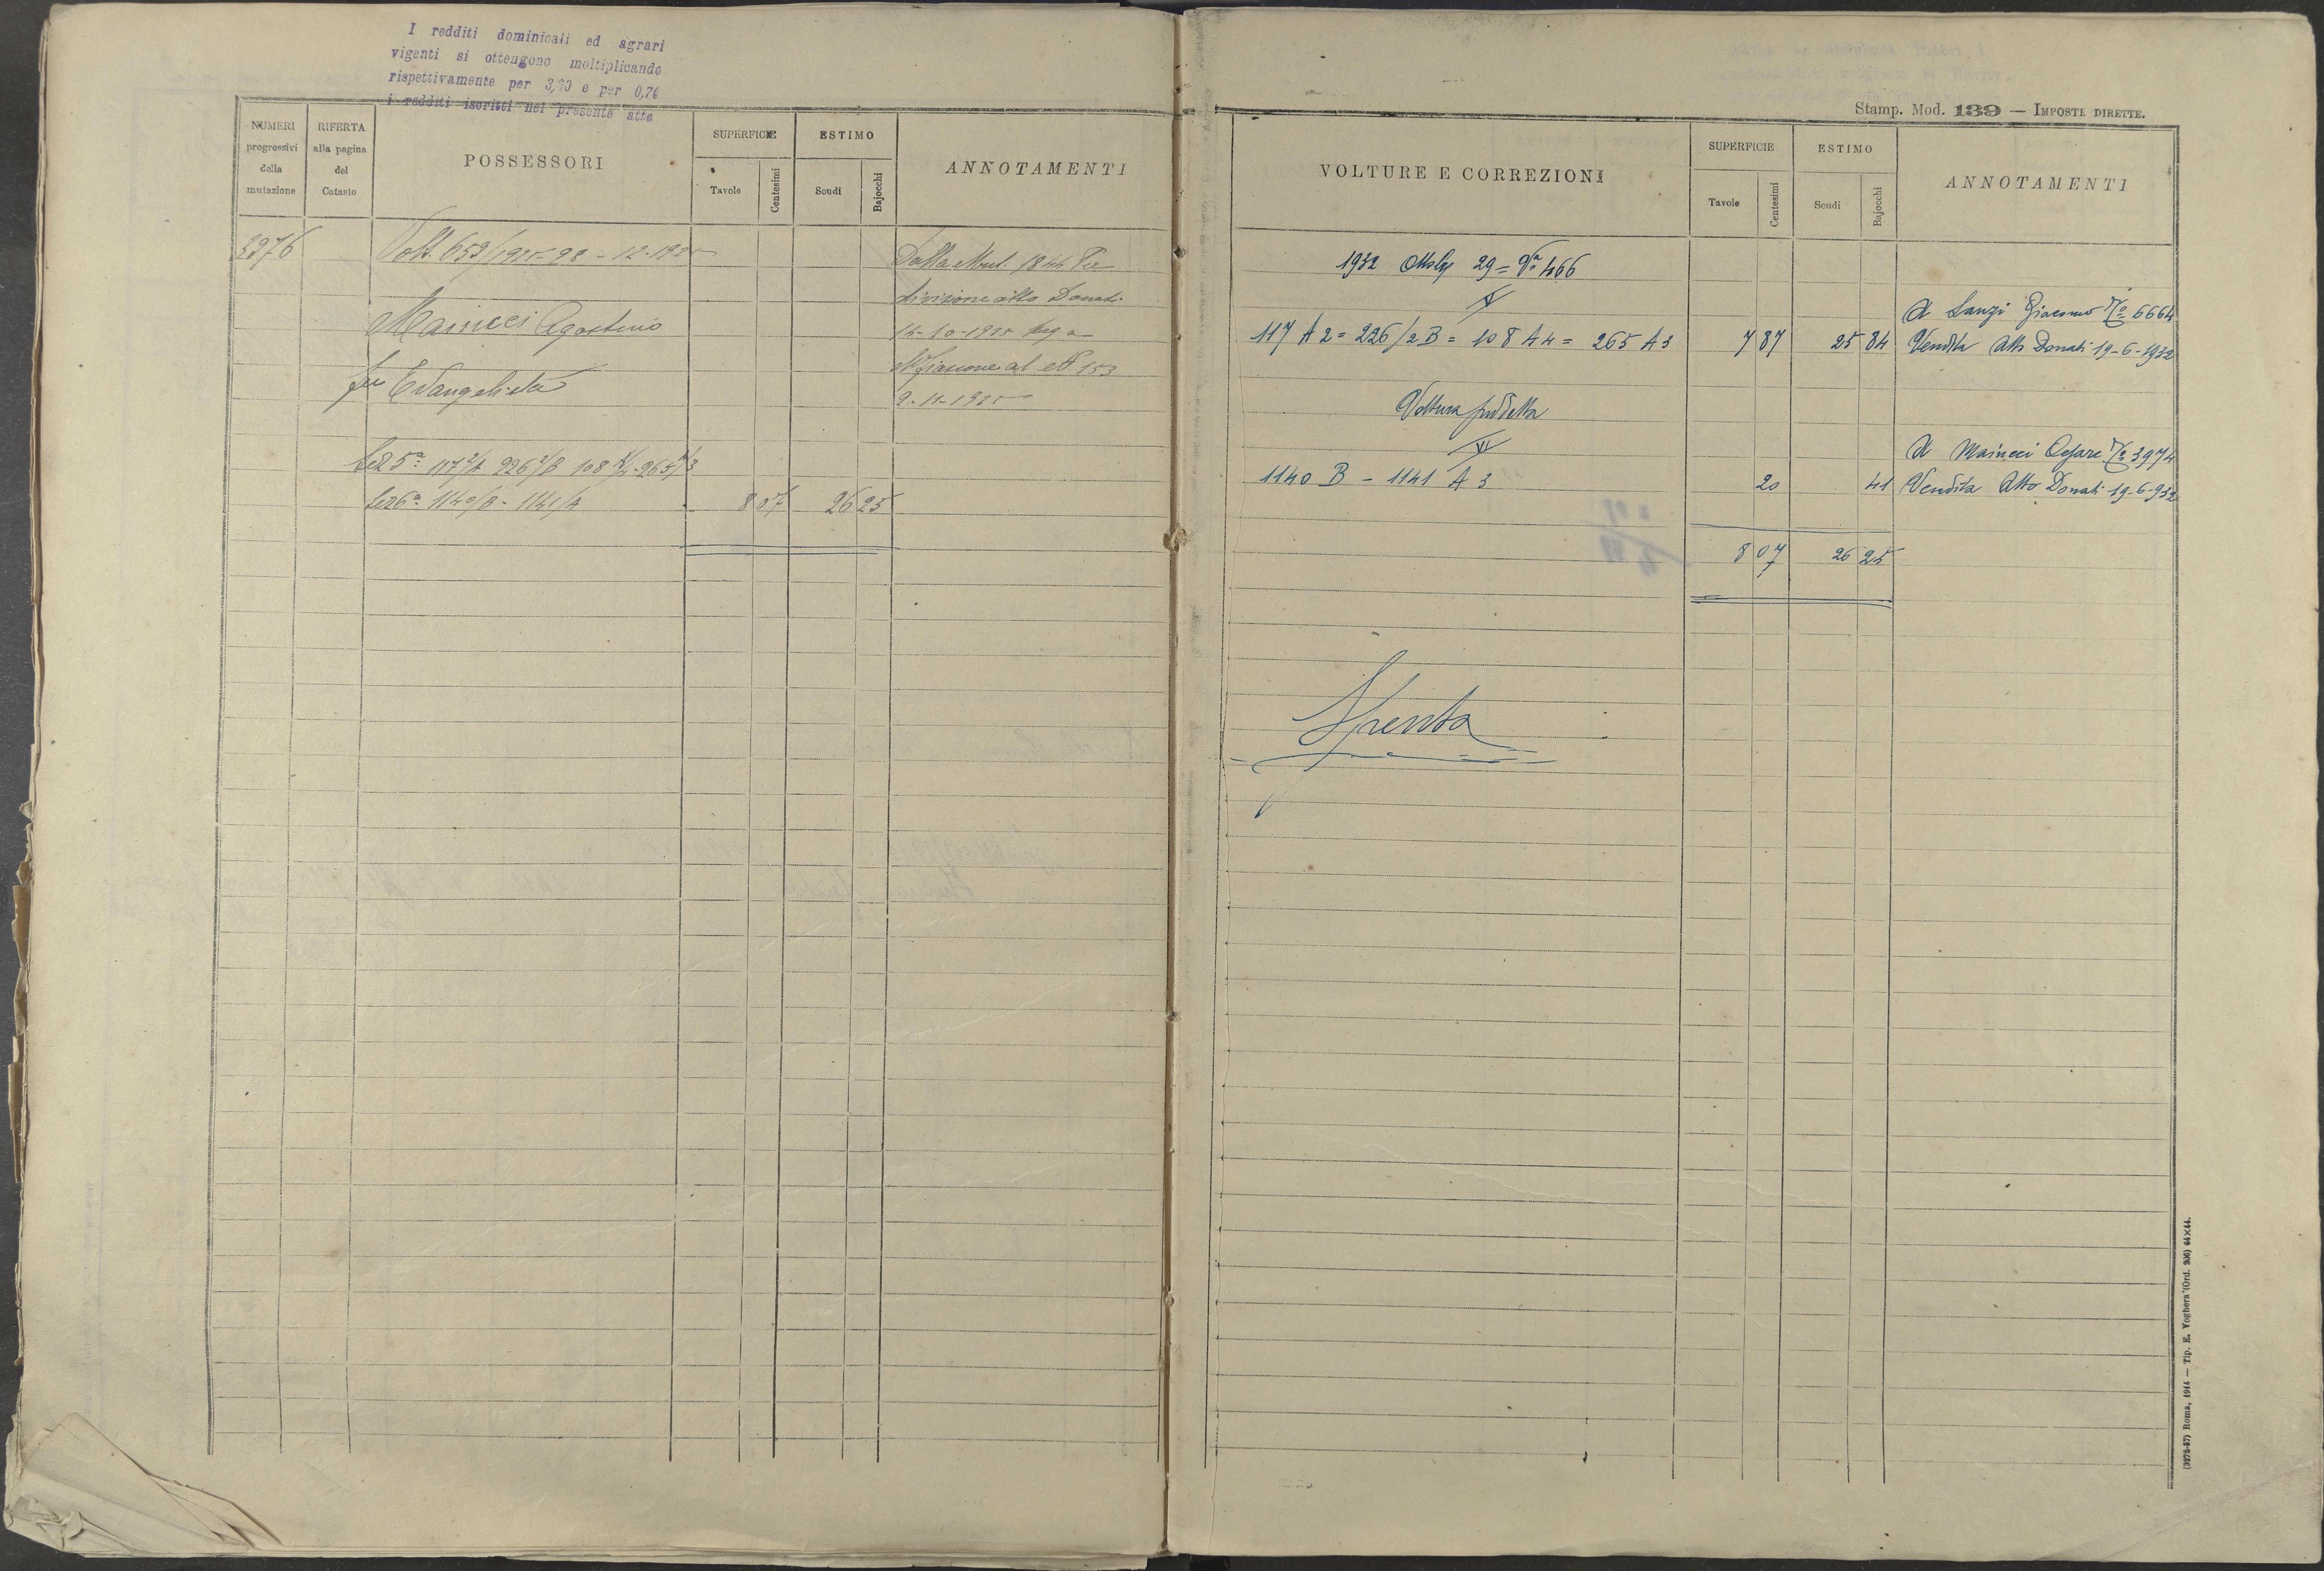 I redditi dominicali ed agrari
vigenti si ottengono moltiplicando
rispettivamente per 3,00 e per 0,76
i redditi iscritti nel presente atto
NUMERI progressivi della mutazione
RIFERTA alla pagina del Catasto
POSSESSORI
SUPERFICIE
Tavole
Centesimi
ESTIMO
Scudi
Bajocchi
ANNOTAMENTI
3976
Volt. 659/1925 - 28 - 12 - 1925
Mainieci Agostino
fu Evangelista
Sez 5ª 117 2/A 226 2/B 108 A/4 - 265 A/3
Sez 6ª 1140/B - 1141/A
8 07 26 25
Dalla Mut. 1844 Per
divisione atto Donati
14-10-1925 Reg a
al Nº 153
9-11-1925
Stamp. Mod. 139 — IMPOSTE DIRETTE.
VOLTURE E CORREZIONI
SUPERFICIE
Tavole
Centesimi
ESTIMO
Scudi
Bajocchi
ANNOTAMENTI
1932 29 = Vª 466
A Lanzi Giacomo Nº 6664
117 A 2 = 226/2 B = 108 A 4 = 265 A 3 7 87 25 84 Vendita Atto Donati 19-6-1932
Voltura suddetta
A Mainieci Cesare Nº 3974
1140 B - 1141 A 3 20 41 Vendita Atto Donati 19-6-932
8 07 26 25
Spenta
(3272-57) Roma, 1914 — Tip. E. Voghera (Ord. 206) 64×44.